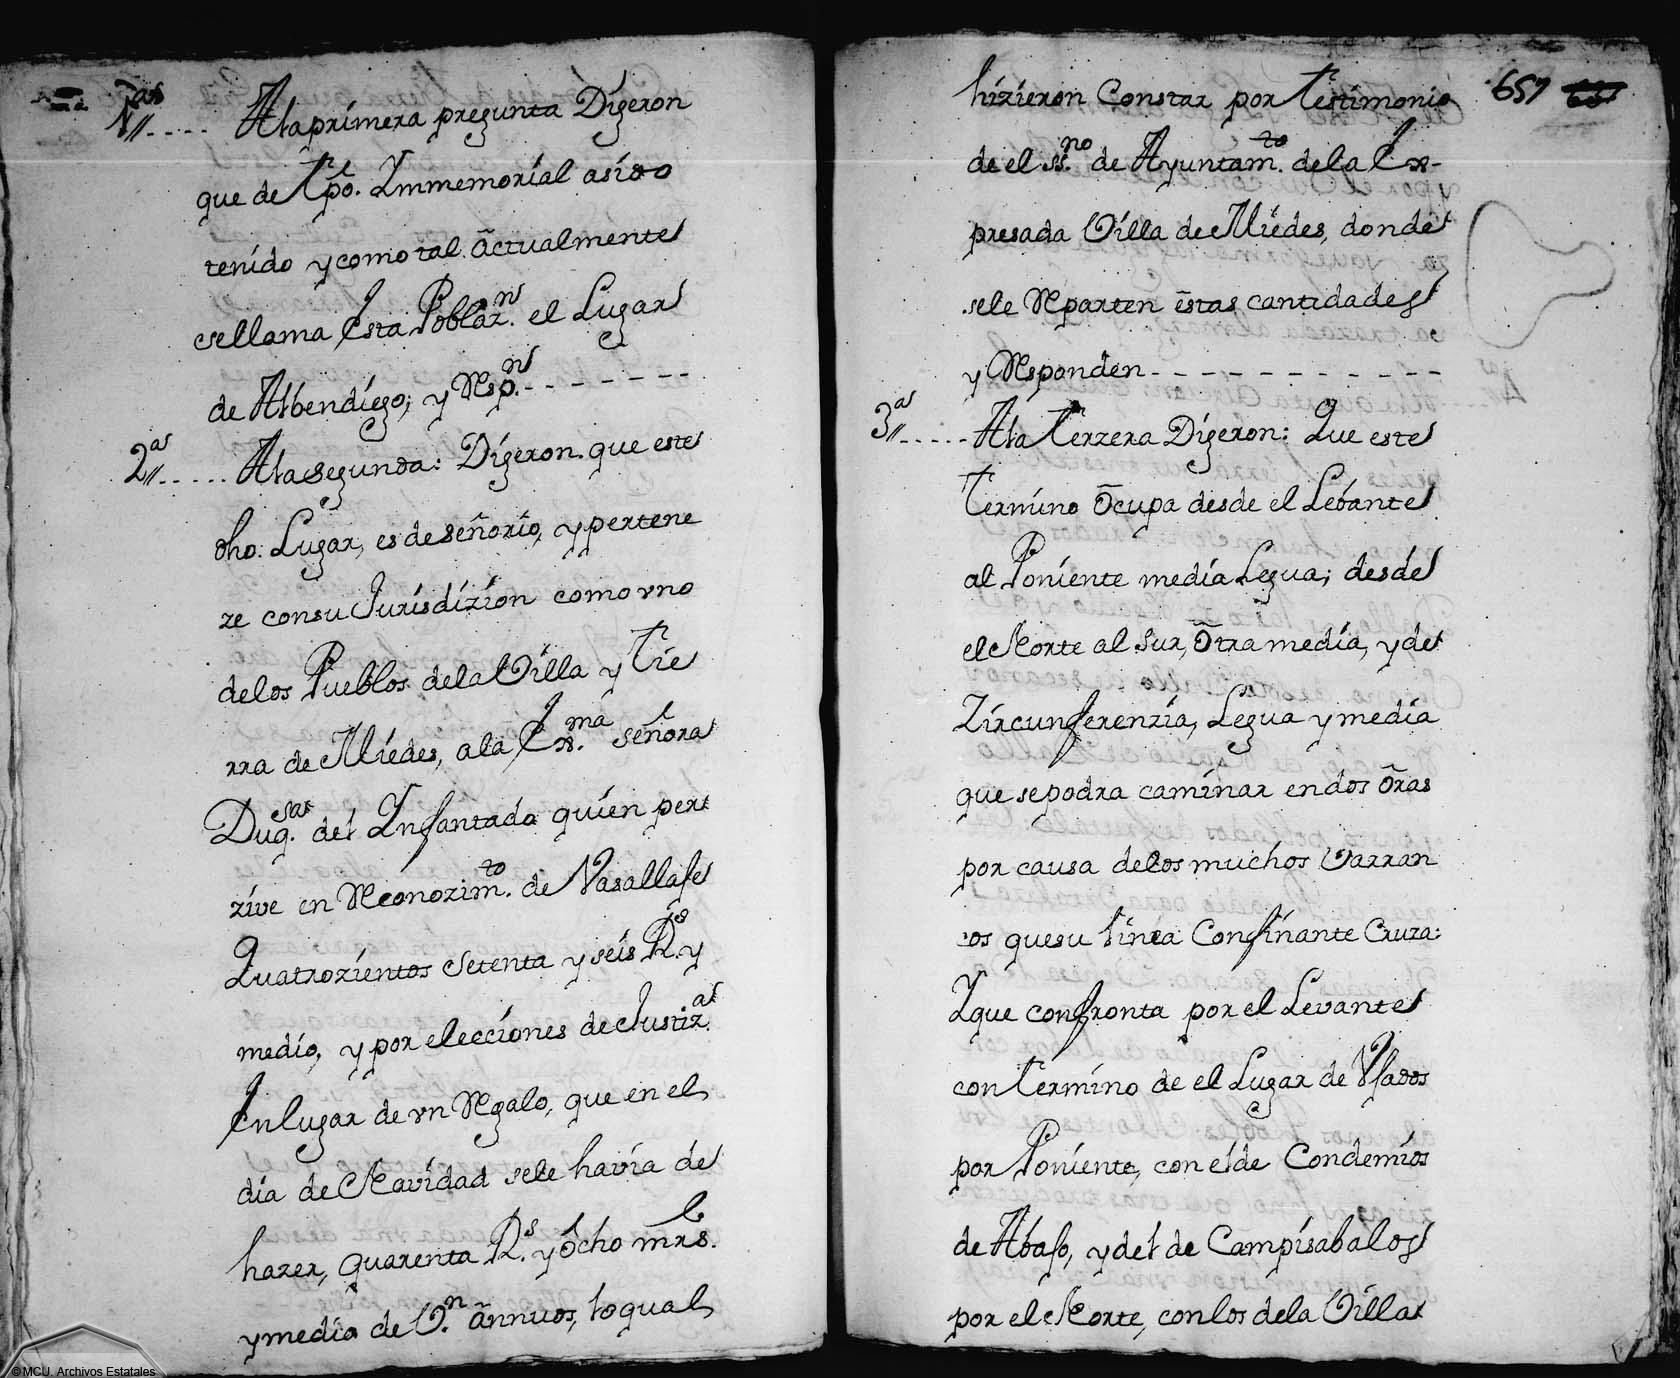 1ª
A la primera pregunta Dijeron
que de tpo. Ymmemorial a sido
tenido y como tal actualmente
se llama Esta Poblazn. el Lugar
de Albendiego; y Respn.
2ª
A la segunda: Dijeron que este
dho. Lugar, es de señorio, y pertene
ze con su Jurisdizion como vno
de los Pueblos de la Villa y tie
rra de Miedes, a la Exma. señora
Duqsa. del Ynfantado quien per
zive en Reconozimto. de Vasallaje
Quatrozientos setenta y seis Rs. y
medio, y por elecciones de Justiza.
En lugar de vn Regalo, que en el
dia de Navidad se le havia de
hazer, quarenta Rs. y ocho mrs.
y media de Vn. annuos, lo qual
hizieron Constar por testimonio
657
de el ssno. de Ayuntamto. de la Ex-
presada Villa de Miedes, donde
se le Reparten estas cantidades
y Responden
3ª
A la terzera Dijeron: Que este
termino Ocupa desde el Lebante
al Poniente media Legua; desde
el Norte al Sur, Otra media, y de
Zircunferenzia, Legua y media
que se podra caminar en dos Oras
por causa de los muchos Varran
cos que su linea Confinante Cruza:
Y que confronta por el Levante
con termino de el Lugar de Ujados
por Poniente, con el de Condemios
de Abajo, y del de Campisabalos
por el Norte, con los de la Villa
© MCU. Archivos Estatales